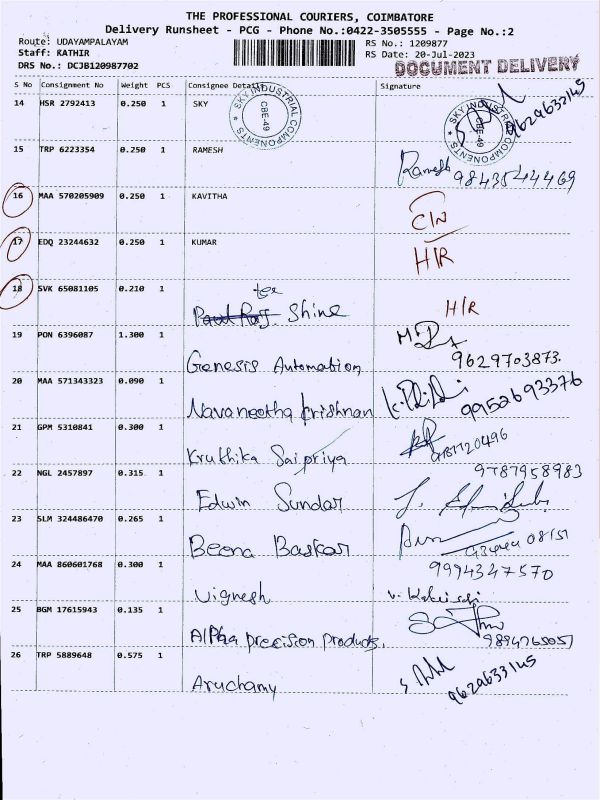 THE PROFESSIONAL COURIERS, COIMBATORE
Delivery Runsheet - PCG - Phone No.:0422-3505555 - Page No.:2
Route: UDAYAMPALAYAM RS No.: 1209877
Staff: KATHIR RS Date: 20-Jul-2023
DRS No.: DCJB120987702 DOCUMENT DELIVERY
S No Consignment No Weight PCS Consignee Details Signature
14 HSR 2792413 0.250 1 SKY
SKY INDUSTRIAL COMPONENTS CBE-49
SKY INDUSTRIAL COMPONENTS CBE-49
9629632145
15 TRP 6223354 0.250 1 RAMESH
Ramesh 9843544469
16 MAA 570205909 0.250 1 KAVITHA
C/N
17 EDQ 23244632 0.250 1 KUMAR
H/R
18 SVK 65081105 0.210 1
Shine H/R
19 PON 6396087 1.300 1
Genesis Automation 9629703873.
20 MAA 571343323 0.090 1
Navaneetha krishnan 9952693376
21 GPM 5310841 0.300 1
Kruthika Saipriya
22 NGL 2457897 0.315 1 9787958983
Edwin Sundar
23 SLM 324486470 0.265 1
Beena Baskar
24 MAA 860601768 0.300 1 9994347570
Vignesh
25 BGM 17615943 0.135 1
Alpha precision products.
26 TRP 5889648 0.575 1
Aruchamy 9629633145